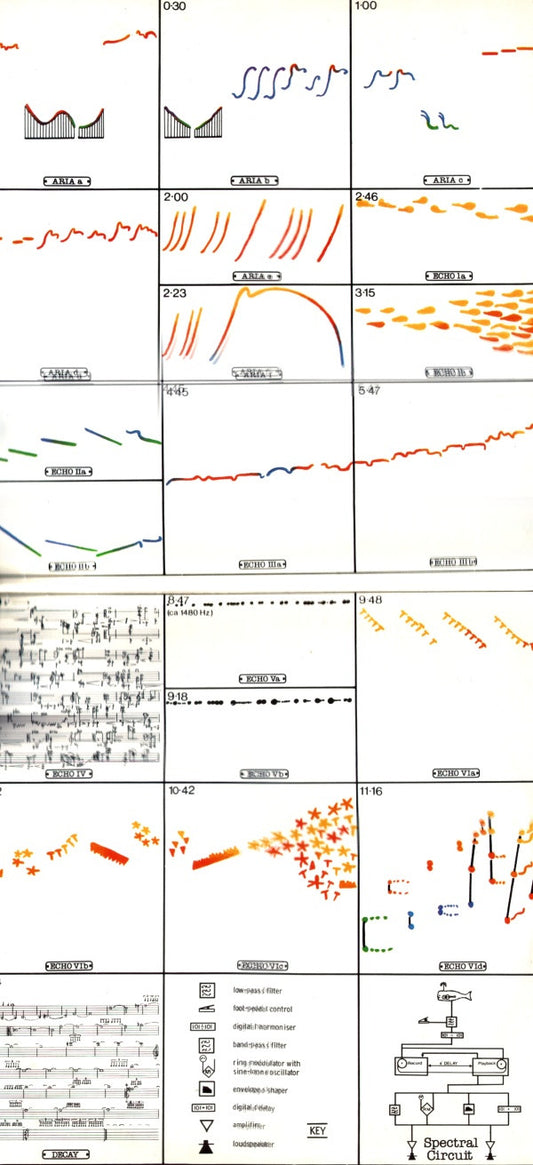 0·30
1·00
ARIA a
ARIA b
ARIA c
2·00
2·46
ARIA e
ECHO Ia
2·23
3·15
ARIA d
ECHO Ib
4·45
5·47
ECHO IIa
ECHO IIb
ECHO IIIa
ECHO IIIb
8·47
(ca 1480 Hz)
9·48
ECHO Va
9·18
ECHO IV
ECHO Vb
ECHO VIa
10·42
11·16
ECHO VIb
ECHO VIc
ECHO VId
low-pass filter
foot-pedal control
digital harmoniser
band-pass filter
ring modulator with
sine-tone oscillator
envelope shaper
digital delay
amplifier
loudspeaker
KEY
DECAY
Record
DELAY
Playback
Spectral
Circuit